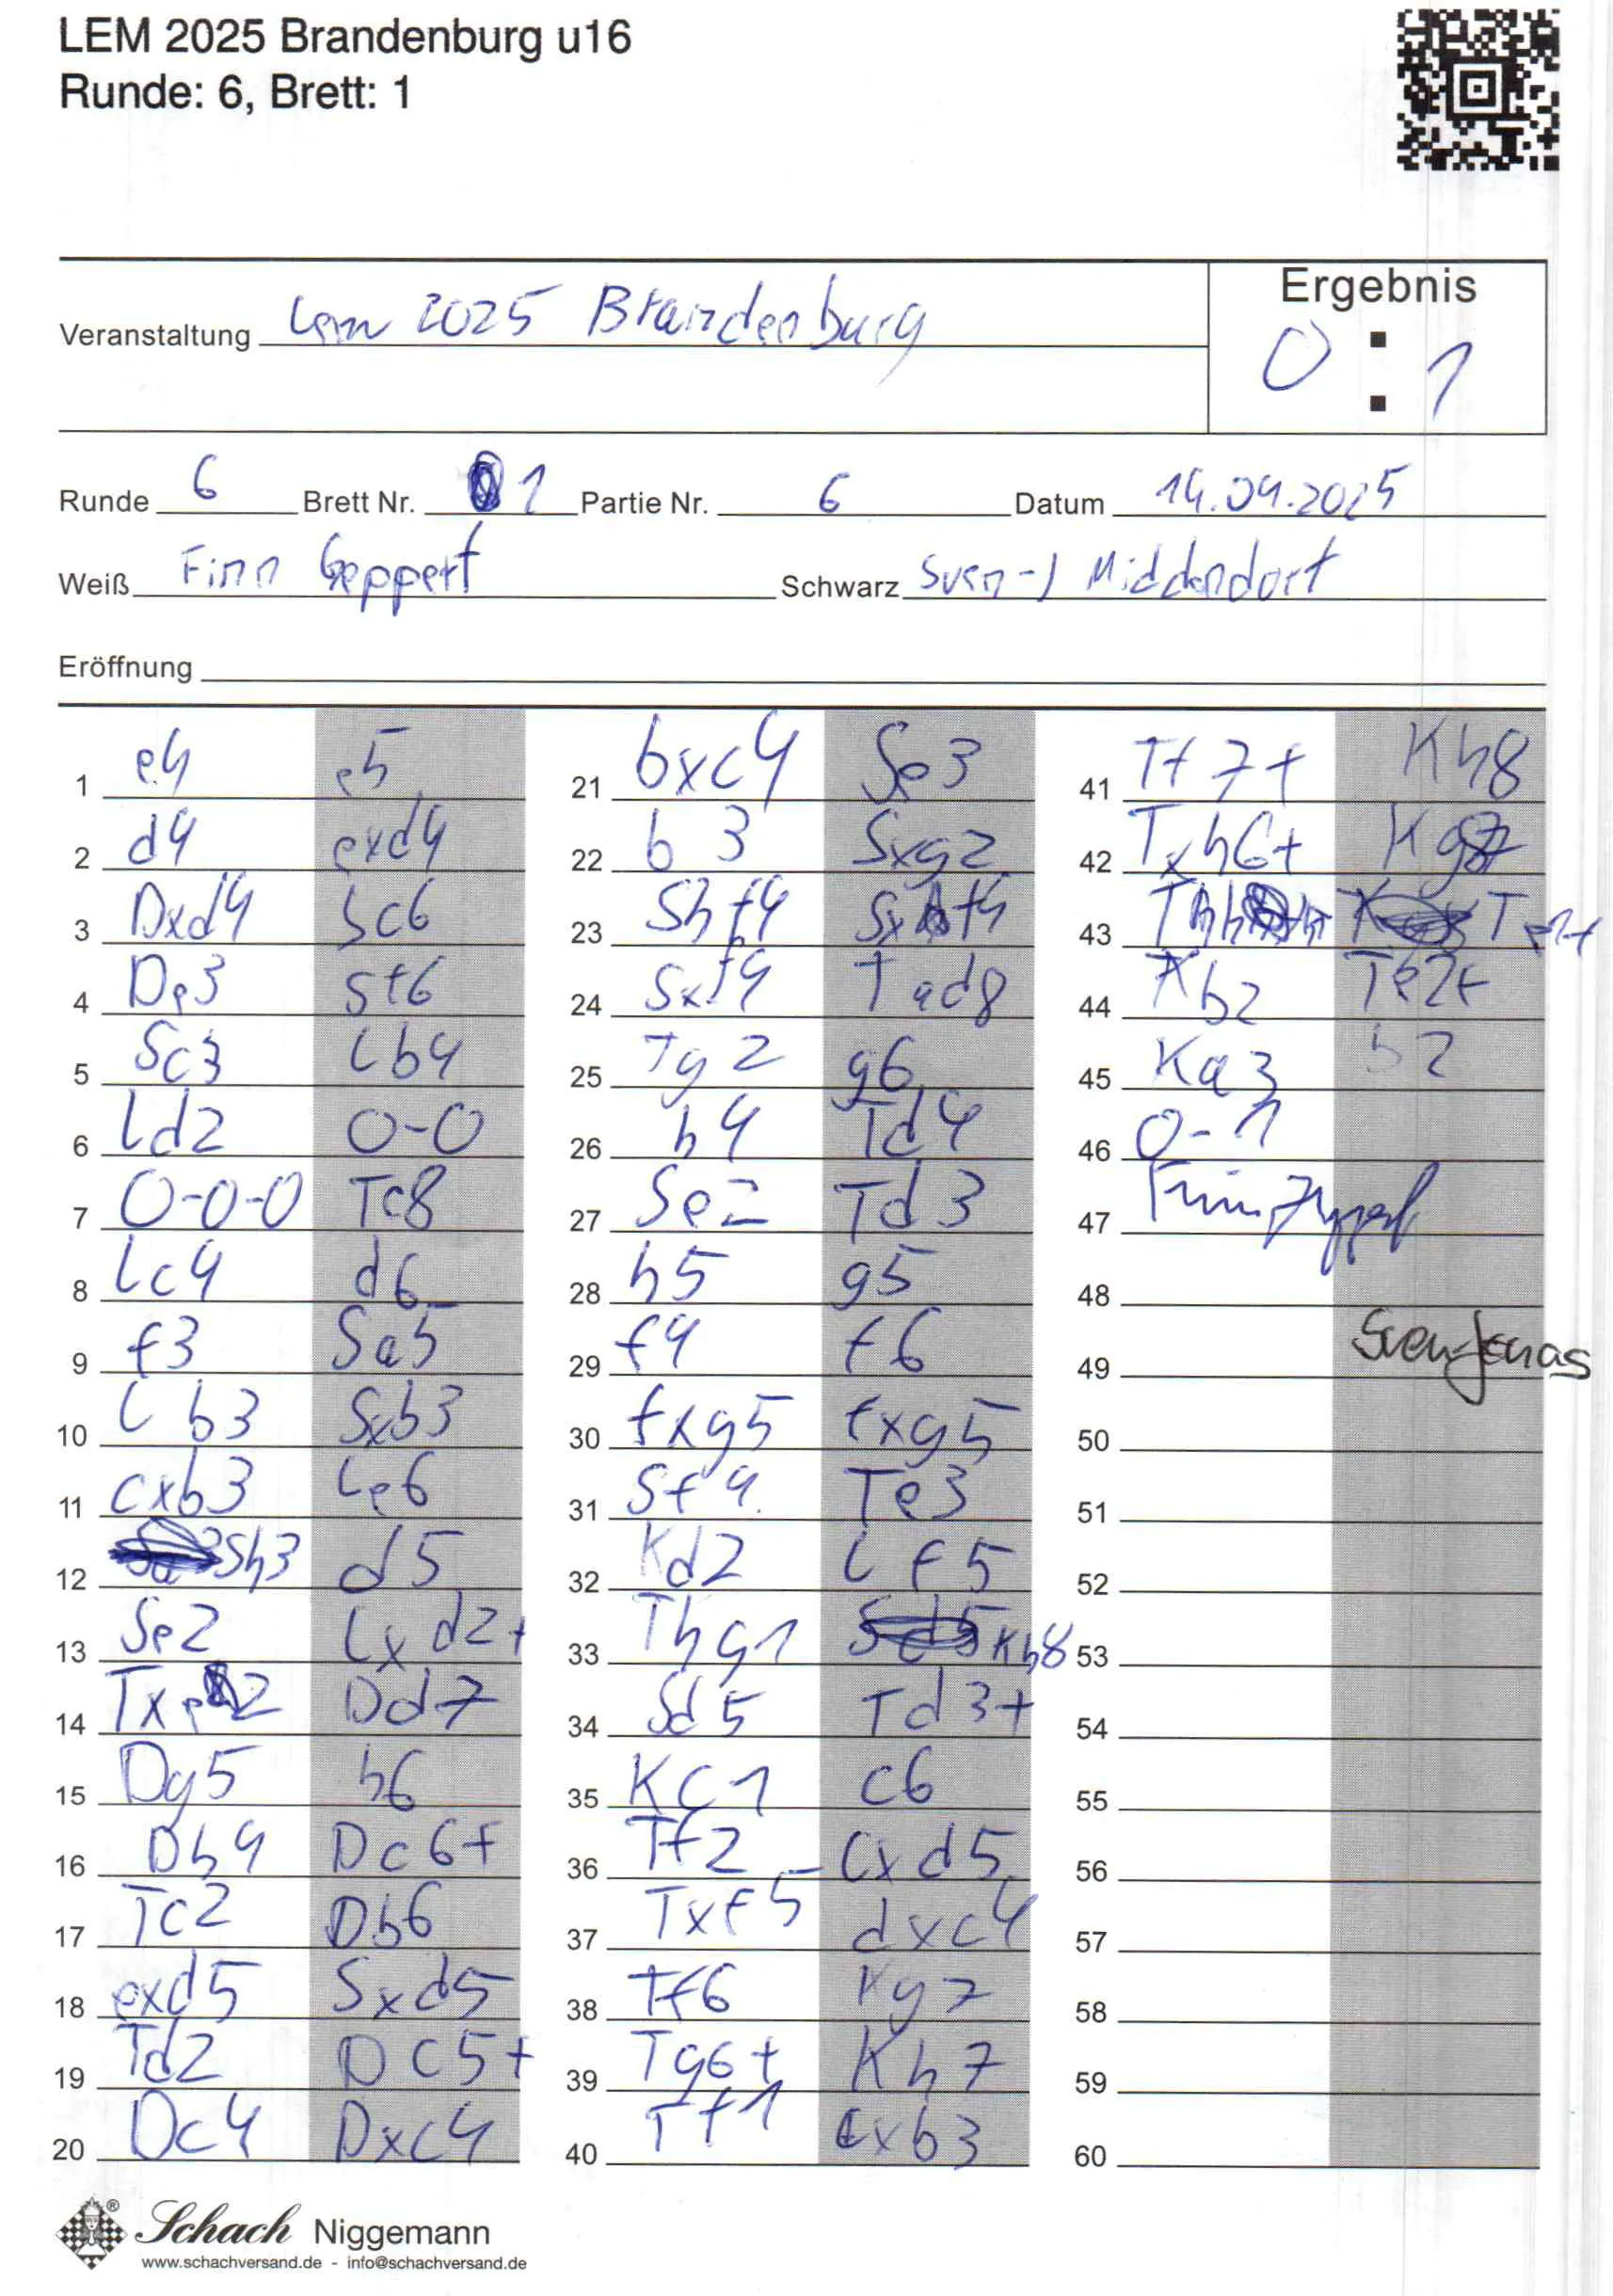 LEM 2025 Brandenburg u16
Runde: 6, Brett: 1
Ergebnis
Veranstaltung Lem 2025 Brandenburg
0 : 1
Runde 6 Brett Nr. 1 Partie Nr. 6 Datum 14.04.2025
Weiß Finn Geppert Schwarz Sven-J Middendorf
Eröffnung
1 e4 e5
2 d4 exd4
3 Dxd4 Sc6
4 De3 Sf6
5 Sc3 Lb4
6 Ld2 0-0
7 0-0-0 Te8
8 Lc4 d6
9 f3 Sa5
10 Lb3 Sxb3
11 cxb3 Le6
12 Sh3 d5
13 Se2 Lxd2+
14 Txd2 Dd7
15 Dg5 h6
16 Dh4 Dc6+
17 Tc2 Db6
18 exd5 Sxd5
19 Td2 Dc5+
20 Dc4 Dxc4
21 bxc4 Se3
22 b3 Sxg2
23 Shf4 Sxf4
24 Sxf4 Tad8
25 Tg2 g6
26 h4 Td4
27 Se2 Td3
28 h5 g5
29 f4 f6
30 fxg5 fxg5
31 Sf4 Te3
32 Kd2 Lf5
33 Thg1 Kh8
34 Sd5 Td3+
35 Kc1 c6
36 Tf2 cxd5
37 Txf5 dxc4
38 Tf6 Kg7
39 Tg6+ Kh7
40 Tf1 cxb3
41 Tf7+ Kh8
42 Txh6+ Kg8
43 Te1+
44 Kb2 Te2+
45 Ka3 b2
46 0-1
47
48
49 Sven-Jonas
50
51
52
53
54
55
56
57
58
59
60
Schach Niggemann
www.schachversand.de - info@schachversand.de